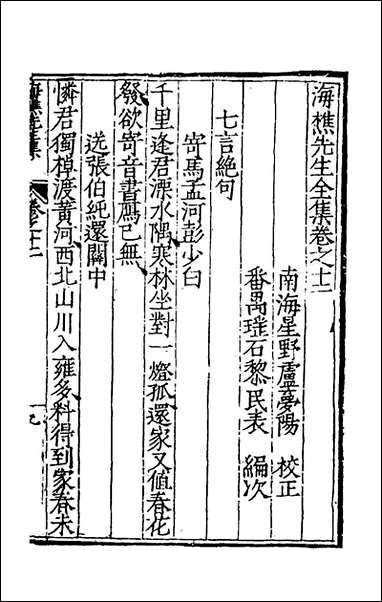 海樵先生全集卷之十二
南海星野盧夢陽 校正
番禺瑤石黎民表 編次
七言絶句
寄馬孟河彭少白
千里逢君溧水隅寒林坐對一燈孤還家又值春花
發欲寄音書鴈已無
送張伯純還關中
憐君獨棹渡黄河西北山川入雍多料得到家春未